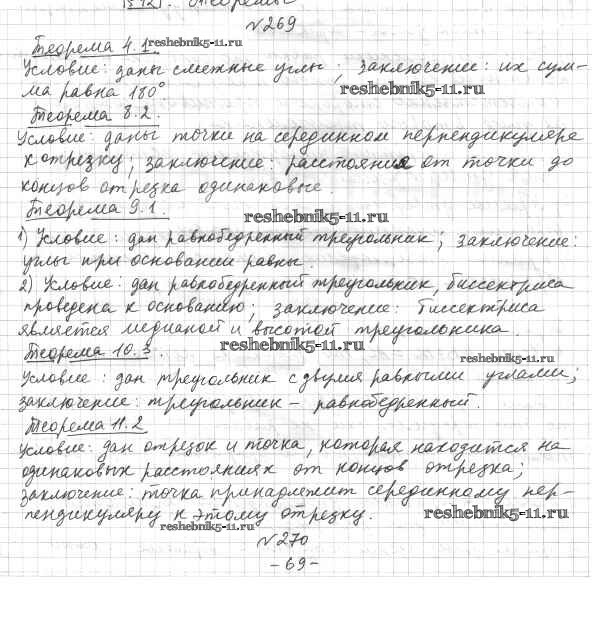 § 12. Теоремы
№ 269
Теорема 4.1. reshebnik5-11.ru
Условие: даны смежные углы; заключение: их сум-
ма равна 180° reshebnik5-11.ru
Теорема 8.2.
Условие: даны точки на серединном перпендикуляре
к отрезку; заключение: расстояния от точки до
концов отрезка одинаковые.
Теорема 9.1. reshebnik5-11.ru
1) Условие: дан равнобедренный треугольник; заключение:
углы при основании равны.
2) Условие: дан равнобедренный треугольник, биссектриса
проведена к основанию; заключение: биссектриса
является медианой и высотой треугольника.
Теорема 10.3. reshebnik5-11.ru reshebnik5-11.ru
Условие: дан треугольник с двумя равными углами;
заключение: треугольник – равнобедренный.
Теорема 11.2
Условие: дан отрезок и точка, которая находится на
одинаковых расстояниях от концов отрезка;
заключение: точка принадлежит серединному пер-
пендикуляру к этому отрезку. reshebnik5-11.ru
reshebnik5-11.ru
№ 270
- 69 -